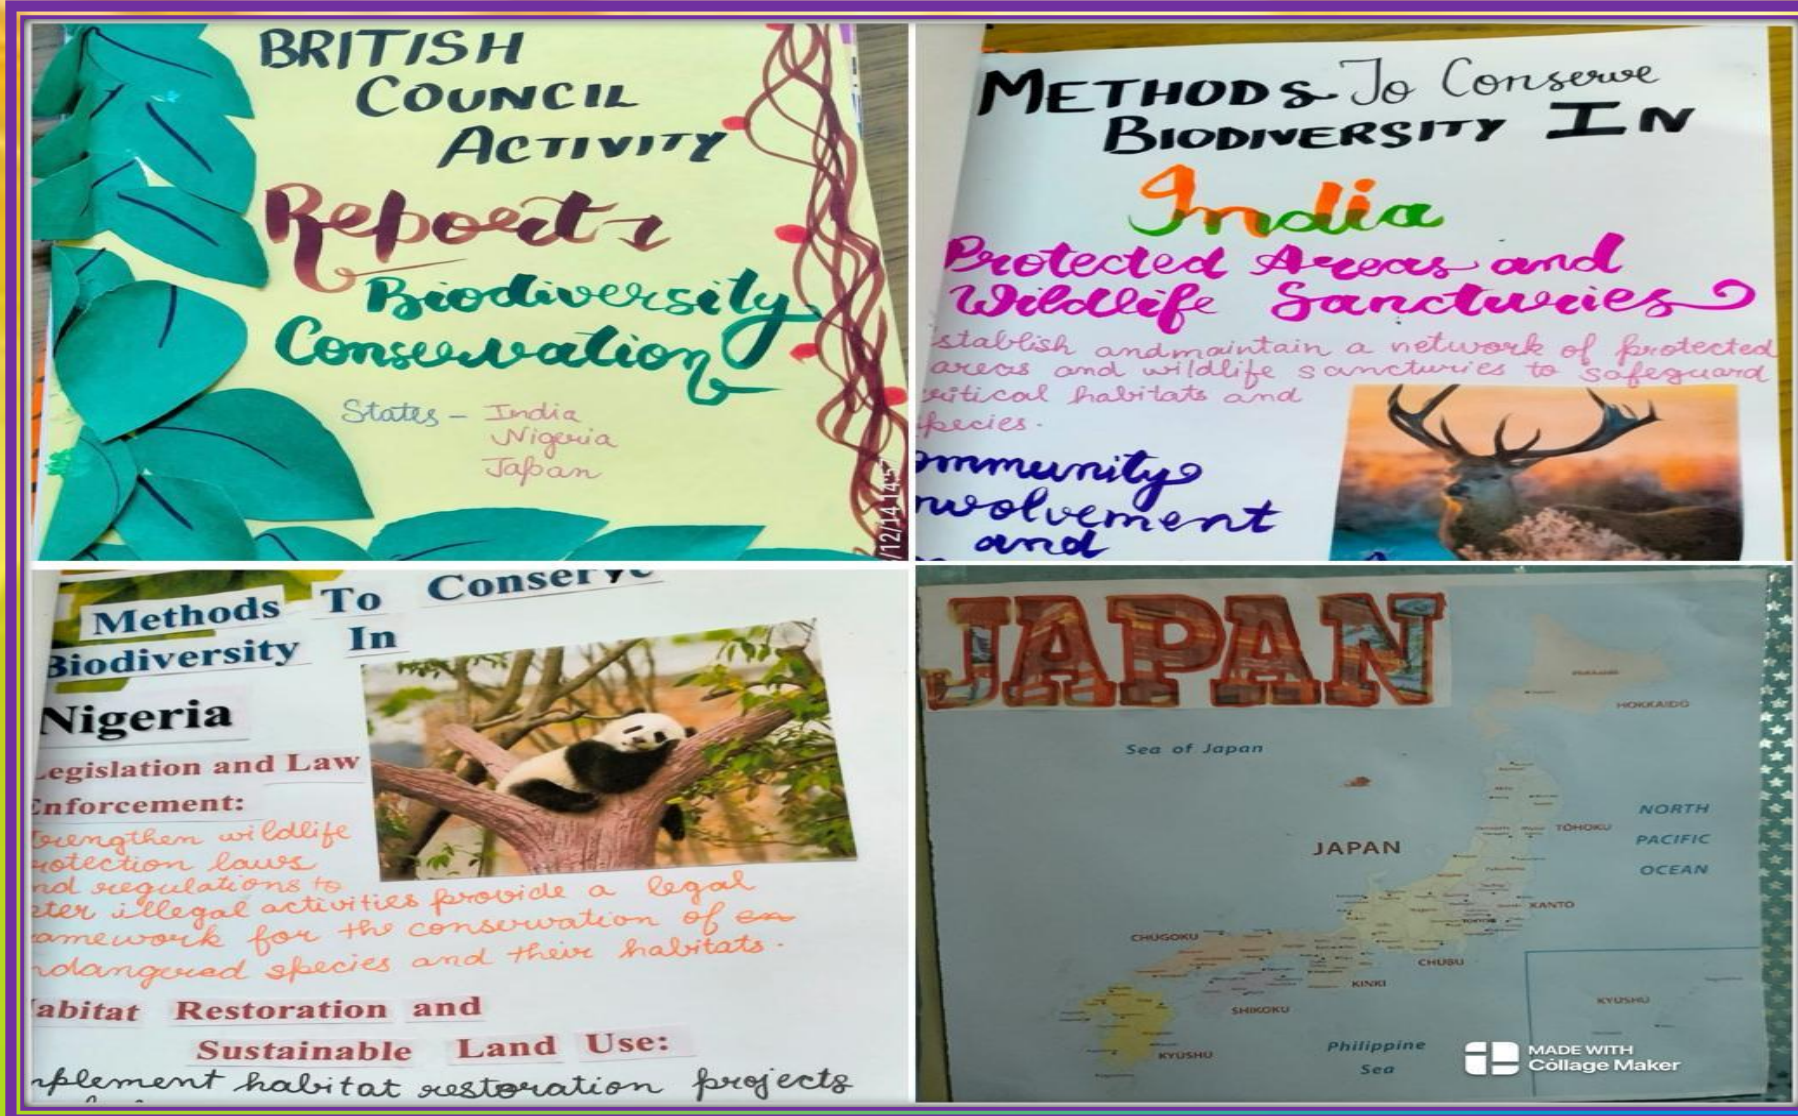 BRITISH
COUNCIL
ACTIVITY
Reports
Biodiversity
Conservation
States - India
Nigeria
Japan
/12/14 14:5
METHODS To Conserve
BIODIVERSITY IN
India
Protected Areas and
Wildlife Sancturies
stablish and maintain a network of protected
areas and wildlife sancturies to safeguard
critical habitats and
species.
ommunity
nvolvement
and
Methods To Conserve
Biodiversity In
Nigeria
Legislation and Law
Enforcement:
trengthen wildlife
rotection laws
nd regulations to
eter illegal activities provide a legal
amework for the conservation of en
ndangered species and their habitats.
abitat Restoration and
Sustainable Land Use:
mplement habitat restoration projects
JAPAN
HOKKAIDO
Sea of Japan
NORTH
PACIFIC
OCEAN
TŌHOKU
JAPAN
KANTO
CHUGOKU
CHUBU
KINKI
SHIKOKU
KYUSHU
KYUSHU
Philippine
Sea
MADE WITH
Collage Maker